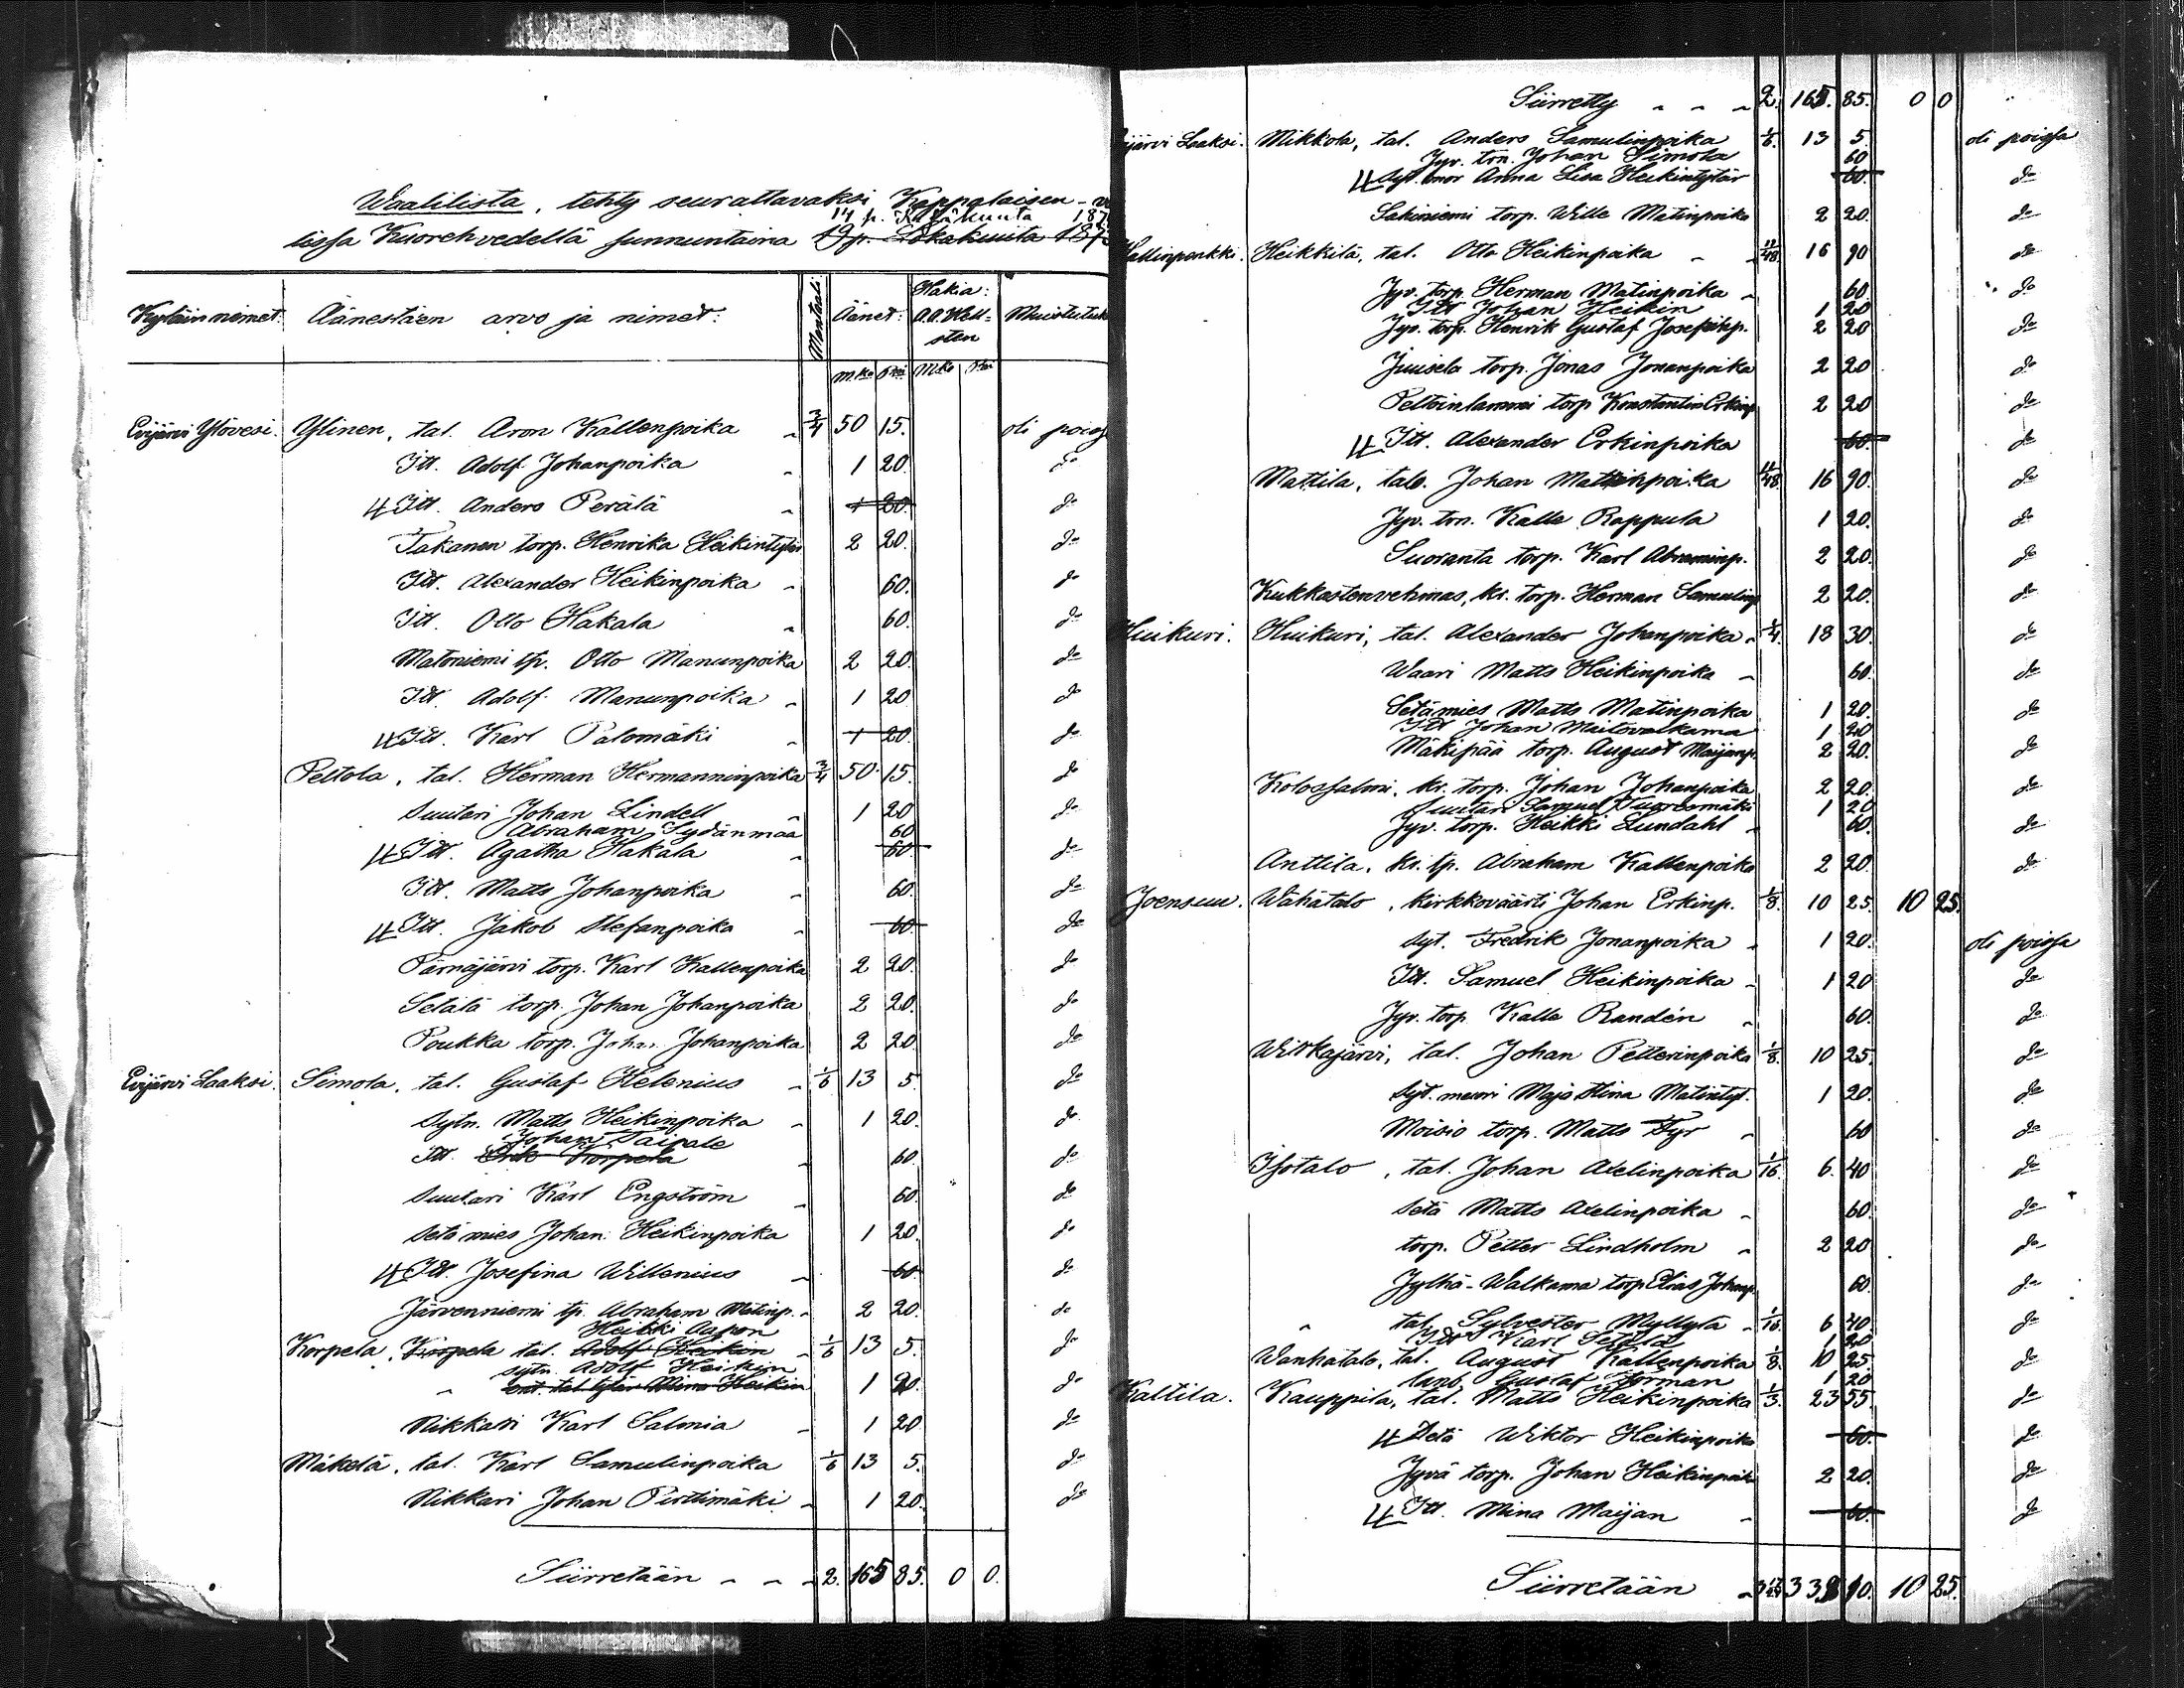 Waalilista, tehty seurattavaksi Kappalaisen-
14 p. 187
lissa Kuorehvedellä sunnuntaina 19 p. Lokakuuta 187
Kyläin nimet. Äänestäen arvo ja nimet: Mantaali Äänet: Hakia: A.A. Hell-sten Muistutuk
Mka Pni Mka Pni
Evijärvi Ylövesi. Ylinen, tal. Aron Kallenpoika 3/4 50 15. oli poissa
Itt. Adolf Johanpoika 1 20. do
4 Itt. Anders Perälä 1 20. do
Takanen torp. Henrika Heikintytär 2 20. do
Itt. Alexander Heikinpoika 60. do
Itt. Otto Hakala 60. do
Matoniemi tp. Otto Manunpoika 2 20. do
Itt. Adolf Manunpoika 1 20 do
4 Itt. Karl Palomäki 1 20. do
Peltola, tal. Herman Hermanninpoika 3/4 50. 15. do
Suutari Johan Lindell 1 20 do
Abraham Sydänmaa 60
4 Itt. Agatha Hakala 60. do
Itt. Matts Johanpoika 60. do
4 Itt. Jakob Stefanpoika 60. do
Pärnäjärvi torp. Karl Kallenpoika 2 20. do
Setälä torp. Johan Johanpoika 2 20. do
Poukka torp. Johan Johanpoika 2 20. do
Evijärvi Laaksi. Simola, tal. Gustaf Helenius 1/6 13 5. do
Sytn. Matts Heikinpoika 1 20. do
Johan Taipale
Itt. Erik Korpela 60. do
Suutari Karl Engström 60. do
Setä mies Johan Heikinpoika 1 20. do
4 Itt. Josefina Willenius 60. do
Järvenniemi tp. Abraham Matinp. 2 20. do
Heikki Aapon
Korpela, Korpela tal. Adolf Heikin 1/6 13 5. do
sytn. Adolf Heikin
ent. tal. tytär Mina Heikin 1 20. do
Nikkari Karl Salonia 1 20 do
Mäkelä, tal. Karl Samulinpoika 1/6 13 5. do
Nikkari Johan Perttimäki 1 20. do
Siirretään 2. 165 85. 0 0.
Siirretty 2. 165. 85. 0 0
ijärvi Laaksi. Mikkola, tal. Anders Samulinpoika 1/6. 13 5. oli poissa
Jyv. trn. Johan Simola 60
4 Syt. mor Anna Lisa Heikintytär 60. do
Sakiniemi torp. Wille Matinpoika 2 20. do
Hallinpenkki. Heikkilä, tal. Otto Heikinpoika 11/48. 16 90 do
Jyv. torp. Herman Matinpoika 60 do
Itt Johan Heikin 1 20
Jyv. torp. Henrik Gustaf Josefinp. 2 20 do
Juusela torp. Jonas Jonanpoika 2 20 do
Peltoinlammi torp Konstantin Erkinp 2 20 do
4 Itt. Alexander Erkinpoika 60. do
Mattila, talo. Johan Mattinpoika 11/48. 16 90. do
Jyv. trn. Kalle Rappula 1 20. do
Suoranta torp. Karl Abraminp. 2 20. do
Kukkastenvehmas, kr. torp. Herman Samulinp 2 20. do
Huikuri. Huikuri, tal. Alexander Johanpoika 1/4. 18 30. do
Waari Matts Heikinpoika 60. do
Setämies Matts Matinpoika 1 20. do
Itt Johan Maitovalkama 1 20
Mäkipää torp. August Maijanp. 2 20. do
Kolossalmi, kr. torp. Johan Johanpoika 2 20. do
Suutari Samuel Tuoresmäki 1 20
Jyv. torp. Heikki Lundahl 60. do
Anttila, kr. tp. Abraham Kallenpoika 2 20. do
Joensuu. Wähätalo, kirkkoväärti Johan Erkinp. 1/8. 10 25. 10 25.
Syt. Fredrik Jonanpoika 1 20. oli poissa
Itt. Samuel Heikinpoika 1 20 do
Jyv. torp. Kalle Randén 60. do
Witkajärvi, tal. Johan Petterinpoika 1/8. 10 25. do
Syt. muori Maja Stina Matintyt. 1 20. do
Moisio torp. Matts Fyr 60 do
Isotalo, tal. Johan Axelinpoika 1/16. 6. 40 do
Setä Matts Axelinpoika 60. do
torp. Petter Lindholm 2 20 do
Jylhä-Walkama torp. Elias Johanp. 60. do
" tal. Sylvester Myllylä 1/16. 6 40. do
Itt Karl Setälä 1 20
Wanhatalo, tal. August Kallenpoika 1/8. 10 25. do
lanb. Gustaf Forman 1 20
Kaltila. Kauppila, tal. Matts Heikinpoika 1/3. 23 55. do
4 Setä Wiktor Heikinpoika 60. do
Jyvä torp. Johan Heikinpoika 2 20. do
4 Itt. Mina Maijan 60. do
Siirretään 10 25.